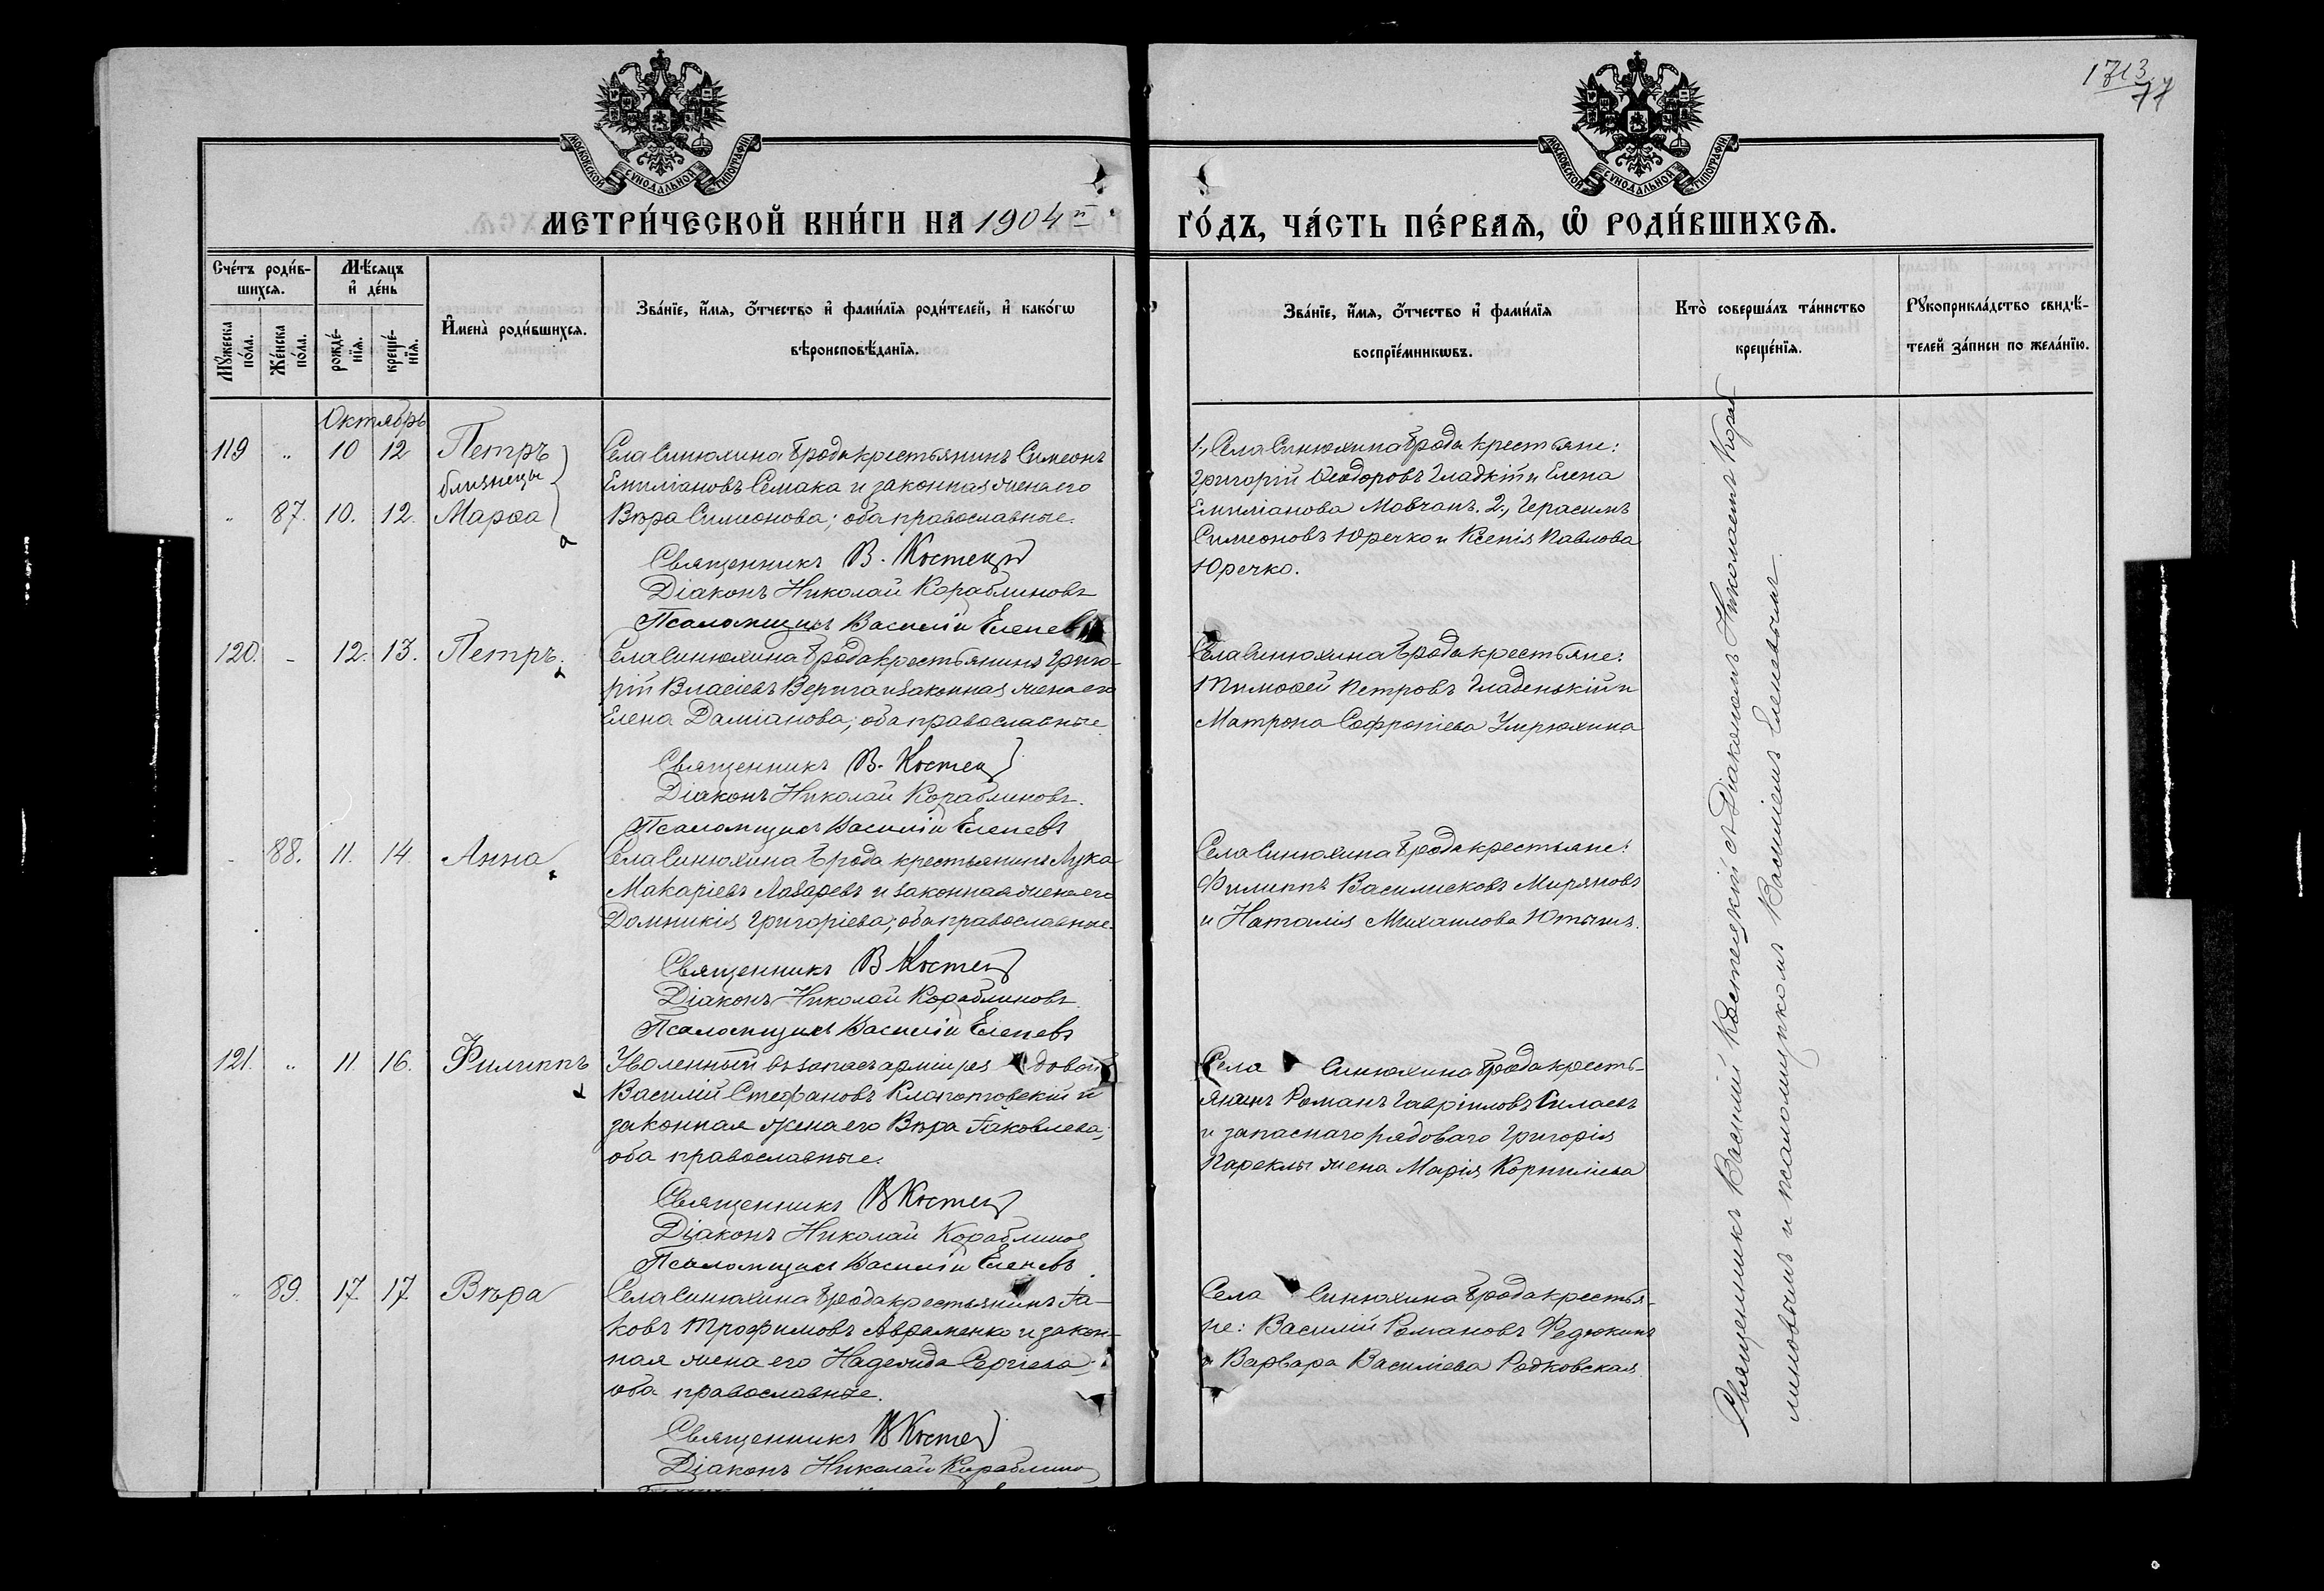 1713
77
МОСКОВСКОЙ СѴНОДАЛЬНОЙ ТИПОГРАФІИ
МОСКОВСКОЙ СѴНОДАЛЬНОЙ ТИПОГРАФІИ
МЕТРИ́ЧЕСКОЙ КНИ́ГИ НА 1904й
ГО́ДЪ, ЧА́СТЬ ПЕ́РВАѦ, Ѡ҆ РОДИ́ВШИХСѦ.
Сче́тъ роди́в-
шихсѧ.
Мѣ́сѧцъ
и҆ де́нь
Мꙋ́жеска по́ла.
Же́нска по́ла.
рожде́-нїѧ.
креще́-нїѧ.
И҆мена̀ роди́вшихсѧ.
Зва́нїе, и҆́мѧ, ѻ҆́тчество и҆ фами́лїѧ роди́телей, и҆ како́гѡ
вѣроисповѣ́данїѧ.
Зва́нїе, и҆́мѧ, ѻ҆́тчество и҆ фами́лїѧ
воспрїе́мникѡвъ.
Кто̀ соверша́лъ та́инство
креще́нїѧ.
Рꙋкоприкла́дство свидѣ́-
телей за́писи по жела́нїю.
Октябрь
119 " 10 12 Петръ
близнецы
" 87. 10. 12. Марѳа
Села Синюхина Брода крестьянинъ Симеонъ
Емиліановъ Семака и законная жена его
Вѣра Симеонова; оба православные.
Священникъ В. Костец
Діаконъ Николай Кораблиновъ
Псаломщикъ Василій Еленев
1, Села Синюхина Брода крестьяне:
Григорій Ѳеодоровъ Гладкій и Елена
Емиліанова Мовчанъ. 2., Герасимъ
Симеоновъ Юречко и Ксенія Павлова
Юречко.
120. - 12. 13. Петръ.
Села Синюхина Брода крестьянинъ Григо-
рій Власіевъ Верига и законная жена его
Елена Даміанова; оба православные
Священникъ В. Костец
Діаконъ Николай Кораблиновъ.
Псаломщикъ Василій Еленевъ
Села Синюхина Брода крестьяне:
Тимоѳей Петровъ Гладенькій и
Матрона Софроніева Умрюхина
- 88. 11. 14. Анна
Села Синюхина Брода крестьянинъ Лука
Макаріевъ Лазаревъ и законная жена его
Домникія Григоріева; оба православные.
Священникъ В Костец
Діаконъ Николай Кораблиновъ
Псаломщикъ Василій Еленевъ
Села Синюхина Брода крестьяне:
Филиппъ Василисковъ Миряновъ
и Наталія Михаилова
121. " 11. 16. Филиппъ
Уволенный въ запасъ арміи ря довой
Василій Стефановъ Клопотовскій и
законная жена его Вѣра Іаковлева;
оба православные.
Священникъ В Костец
Діаконъ Николай Кораблинов
Псаломщикъ Василій Еленевъ
Села Синюхина Брода кресть-
янинъ Романъ Гавріиловъ Силаевъ
и запаснаго рядоваго Григорія
Пареклы жена Марія Корниліева
" 89. 17. 17. Вѣра
Села Синюхина Брода крестьянинъ Іа-
ковъ Трофимовъ Авраменко и закон-
ная жена его Надежда Сергіева;
оба православные.
Священникъ В Костец
Діаконъ Николай Кораблино
Села Синюхина Брода крестья-
не: Василій Романовъ Федюкинъ
и Варвара Василіева Радковская.
Священникъ Василій Костецкій съ Діакономъ Николаемъ Кораб
линовымъ и псаломщикомъ Василіемъ Еленевымъ.